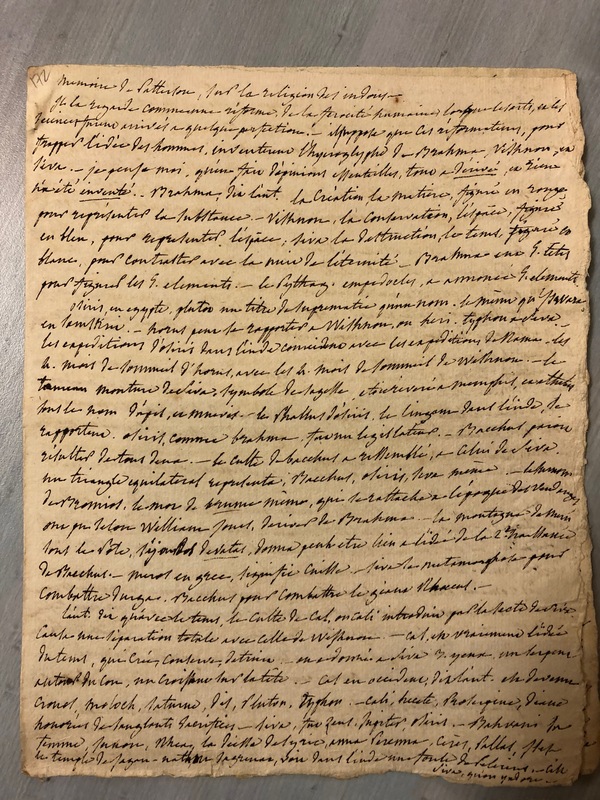 Memoire de Patterson, sur la religion des indous —
Il la regarde comme une réforme de la ferocité humaine, lorsque les arts, et les
sciences furent arrivés a quelque perfection. — il suppose que ces reformateurs, pour
frapper l'idée des hommes, inventerent l'hyeroglyphe de Brahma, Vishnou, et
Siva. — je pense moi, qu'une fois d'opinions essentielles, tout a dérivé, et rien
n'a été inventé. Brahma, dit l'aut. la Création la matière, figuré en rouge
pour représenter la substance — Vishnou, la Conservation, l'espace, figuré
en bleu, pour representer l'espace; Siva la destruction, le tems, figuré en
blanc, pour contraster avec la nuit de l'éternité — Brahma eut 4 têtes
pour figurer les 4 elements. — le Pythag. empedocles, a annoncé 4 elements
osiris, en egypte, plutot un titre de suprematie qu'un nom. le même qu'Iswara
en Samskrit. — horus peut se rapporter a Wishnou, ou heri. typhon a Siva. —
les expeditions d'osiris dans l'inde coincident avec les expéditions de Rama. — les
4. mois de sommeil d'horus, avec les 4. mois de sommeil de Wishnou. — le
taureau monture de Siva, symbole de sagesse, etoit reveré a memphis, et a thebes
sous le nom d'apis, et mnevis — le Phallus d'osiris, le lingam dans l'inde, se
rapportent. osiris, comme brahma, fut un legislateur. — Bacchus paroit
resulter de tous deux. — le culte de bacchus a ressemblé, a celui de Siva.
un triangle equilateral represente, Bacchus, osiris, Siva meme — le nom
de Bromios, le mot de brume même, qui se rattache a l'époque des Vendanges
ont pu selon William Jones, deriver de Brahma. — la montagne de merù
sous le Pole, séjour des devatas, donna peut etre lieu a l'idée de la 2e naissance
de Bacchus — meros en grec, signifie Cuisse — Siva se metamorphosa pour
combattre durga. Bacchus pour combattre le géant Rhœcus. —
l'aut. dit qu'avec le tems, le culte de Cal, ou cali introduit par la secte de Siva
causa une séparation totale avec celle de Wishnou. — Cal, est vraiment l'idée
du tems, qui crée, conserve, detruit — on a donné a Siva 3 yeux, un serpent
autour du cou, un croissant sur la tête — Cal en occident, dit l'aut. est devenu
Cronos, moloch, saturne, Dis, Pluton, typhon. — cali, hecate, Proserpine, Diane
honorées de sanglants sacrifices — Siva, fut zeus, jupiter, osiris. — Bahvani sa
femme, junon, Rhea, la Déesse de syrie, anna Perenna, Cérès, Pallas,
le temple de jagan-nath jagrenat, dont dans l'inde une foule de pelerins — c'est
Siva, qu'on y adore. —